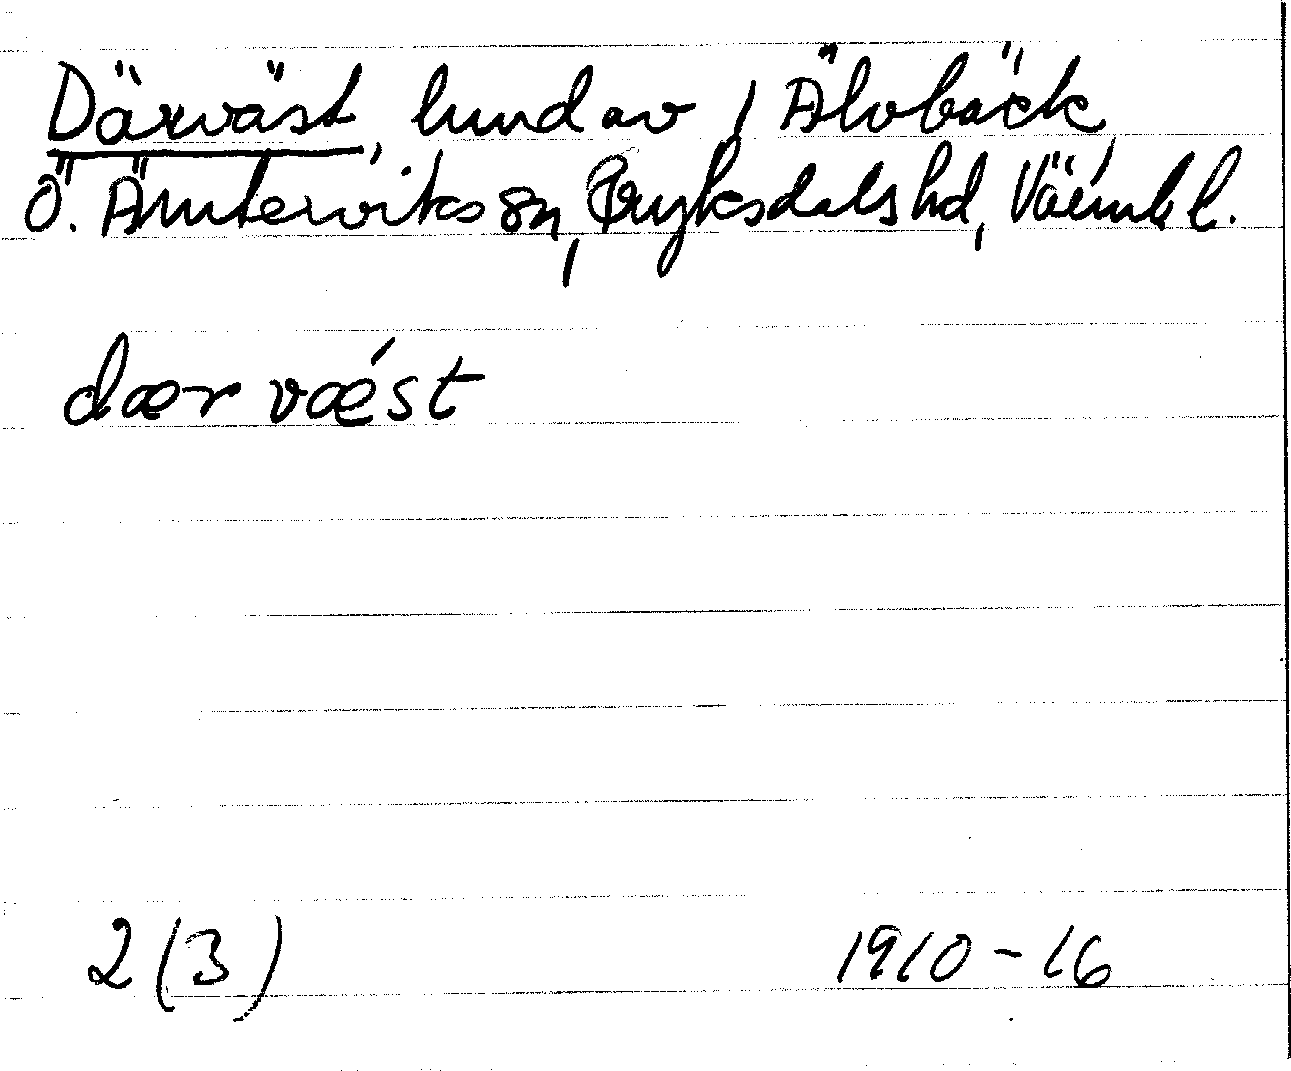 Därväst, lund av 1 Älvbäck,
Ö. Ämterviks sn, Fryksdals hd, Värml l.
dær væ´st
2 (3) 1910-16